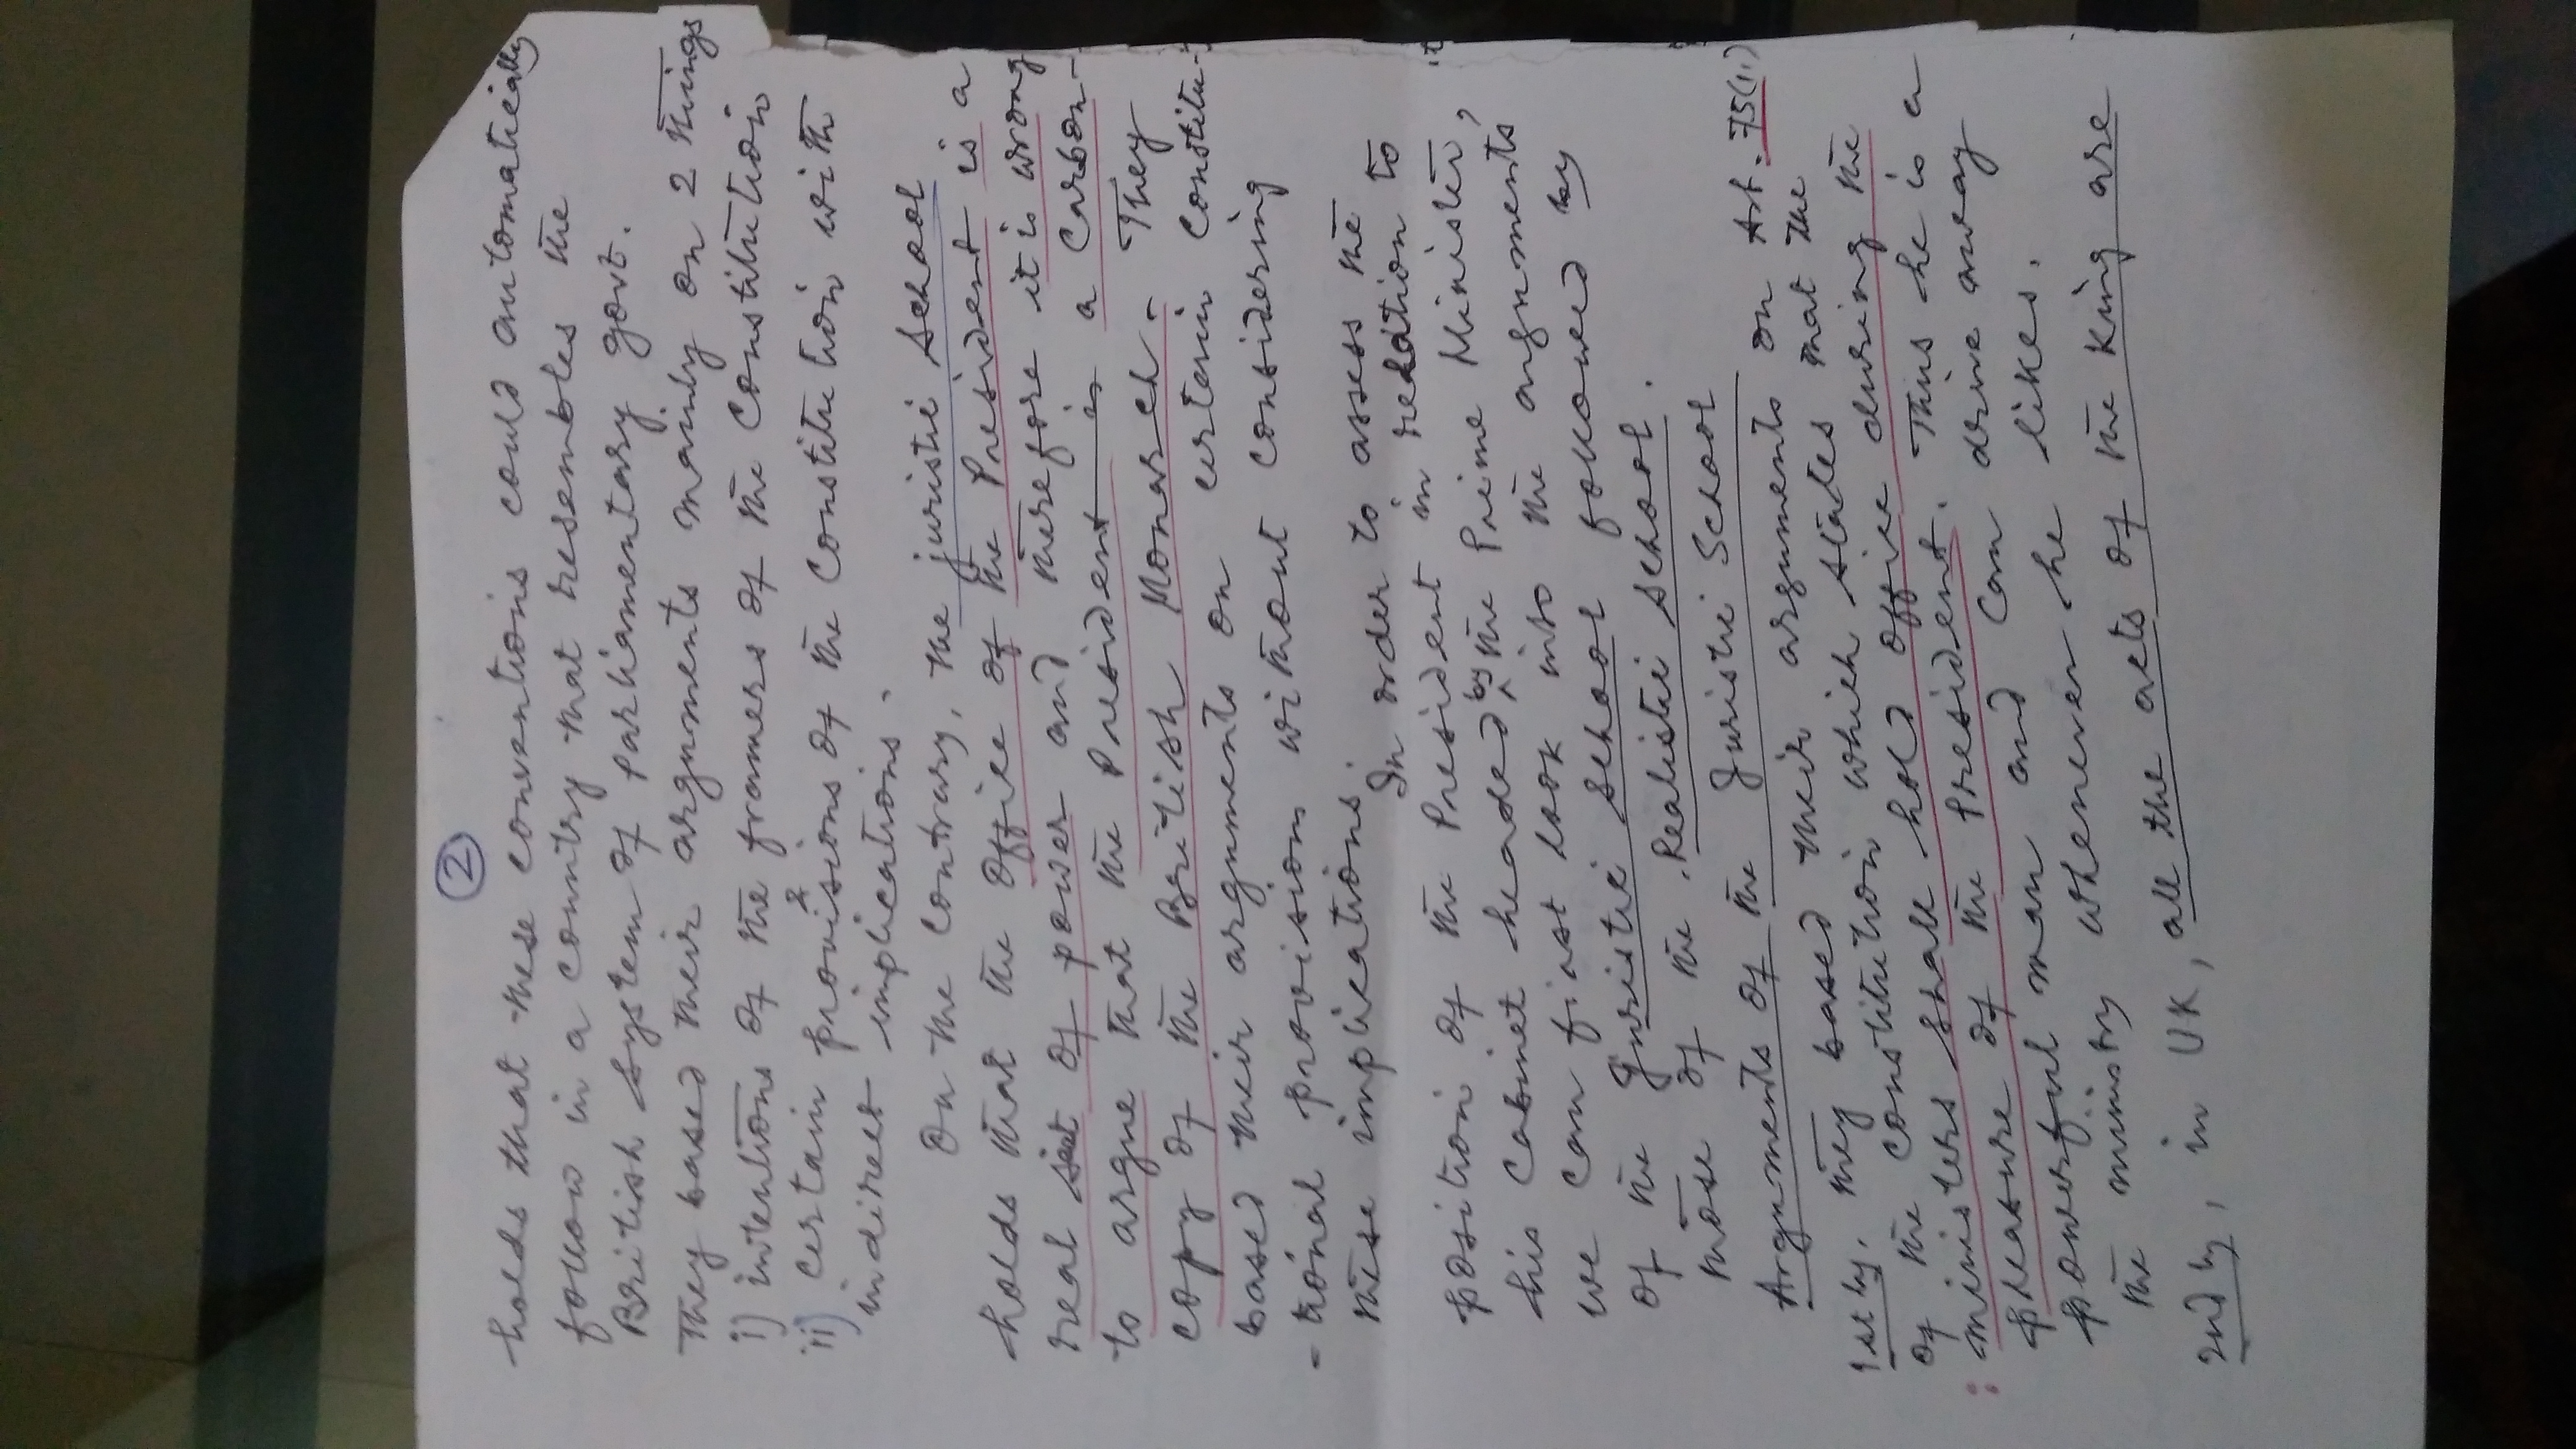 2
holds that these conventions could automatically
follow in a country that resembles the
British system of parliamentary govt.
They based their arguments mainly on 2 things
i) intentions of the framers of the Constitution
ii) certain provisions of the Constitution with
indirect implications.
On the contrary, the juristic school
holds that the office of the President is a
real seat of power and therefore it is wrong
to argue that the President is a Carbon-
copy of the British Monarch. They
based their arguments on certain Constitu-
-tional provisions without considering
these implications.
In order to assess the
position of the President in relation to
his Cabinet headed by the Prime Minister,
we can first look into the arguments
of the Juristic School followed by
those of the Realistic School.
Arguments of the Juristic School
1stly, they based their arguments on Art. 75(1)
of the Constitution which states that the
ministers shall hold office during the
pleasure of the President. Thus he is a
powerful man and can drive away
the ministry whenever he likes.
2ndly, in UK, all the acts of the King are